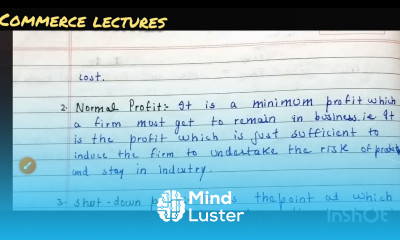 COMMERCE LECTURES
cost.
2. Normal Profit:- It is a minimum profit which
a firm must get to remain in business i.e It
is the profit which is just sufficient to
induce the firm to undertake the risk of
and stay in industry.
3- Shut-down the point at which
Mind
Luster
InShOt